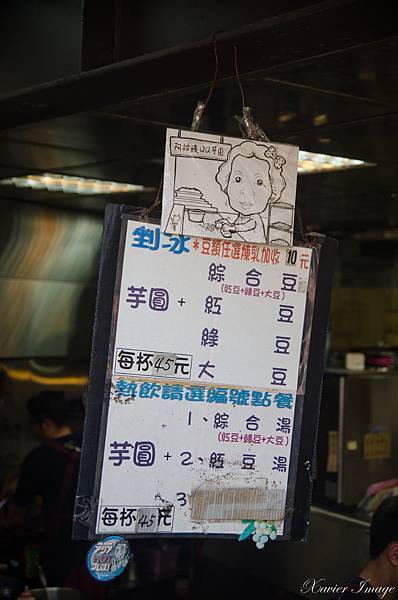 阿柑姨QQ芋圓
剉冰 *豆類任選煉乳加收10元
綜合豆
(紅豆+綠豆+大豆)
芋圓+紅豆
綠豆
每杯45元 大豆
熱飲請選編號點餐
1、綜合湯
(紅豆+綠豆+大豆)
芋圓+2、紅豆湯
3
每杯45元
Xavier Image